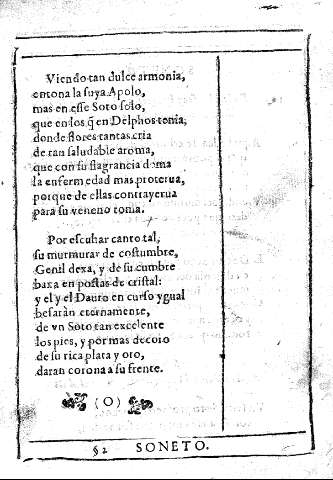 Viendo tan dulce armonia,
entona la suya Apolo,
mas en esse Soto solo,
que en los q̃ en Delphos tenia;
donde flores tantas cria
de tan saludable aroma,
que con su flagrancia doma
la enfermedad mas proterua,
porque de ellas contrayerua
para su veneno toma.
Por escuhar canto tal,
su murmurar de costumbre,
Genil dexa, y de su cumbre
baxa en postas de cristal:
y el y el Dauro en curso ygual
besaràn eternamente,
de vn Soto tan excelente
los pies, y por mas decoro
de su rica plata y oro,
daran corona a su frente.
(O)
§ 2 SONETO.